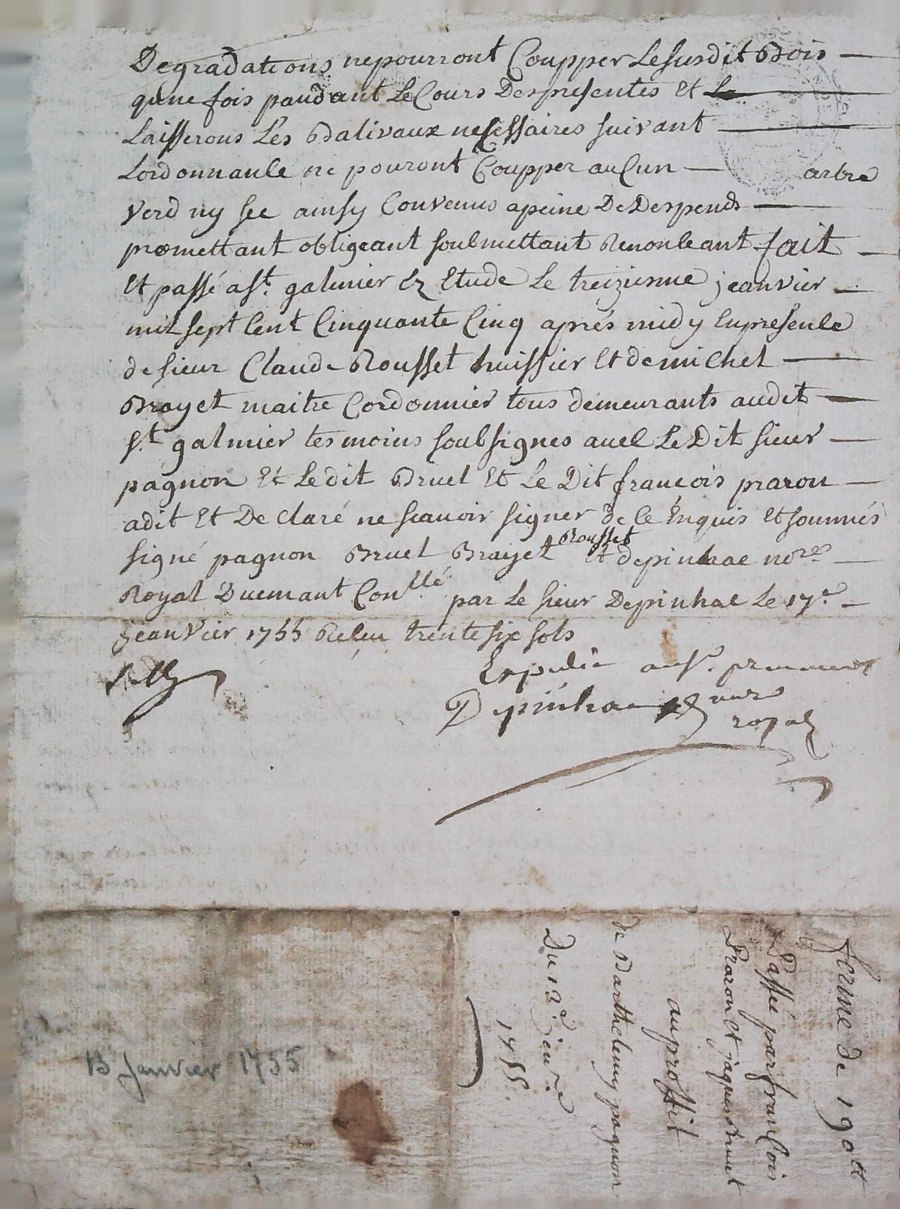 Degradations ne pourront Coupper Le susdit Bois
qune fois pandant Le Cours Des presentes Et
Laisserons Les Balivaux necessaires suivant
Lordonnance ne pouront Coupper aucun arbre
Verd ny sec ainsy Convenus apeine De Despends
promettant obligeant soubmettant Renonceant fait
Et passé a St. galmier Ez Etude Le treizieme jeanvier
mil sept cent Cinquante Cinq aprés midy En presence
de sieur Claude Rousset huissier Et de michel
Brayet maitre Cordonnier tous demeurants audit
St. galmier tesmoins soubsignes avec Le Dit sieur
pagnon Et Le dit Bruel Et Le Dit francois praron
adit Et De Claré ne scavoir signer de Ce Enquis Et sommés
signé pagnon Bruel Brayet Rousset Et depinhac nore
Royal Duemant Conllé par Le sieur Depinhac Le 17e
jeanvier 1755 Recu trente six sols
Expedié au sr. preneur
Depinhac nore
royal
ferme de 190tt
Passée par francois
Praron et jaques bruel
au proffit
de Barthelemy pagnon
Du 13e jenv.e
1755.
13 Janvier 1755